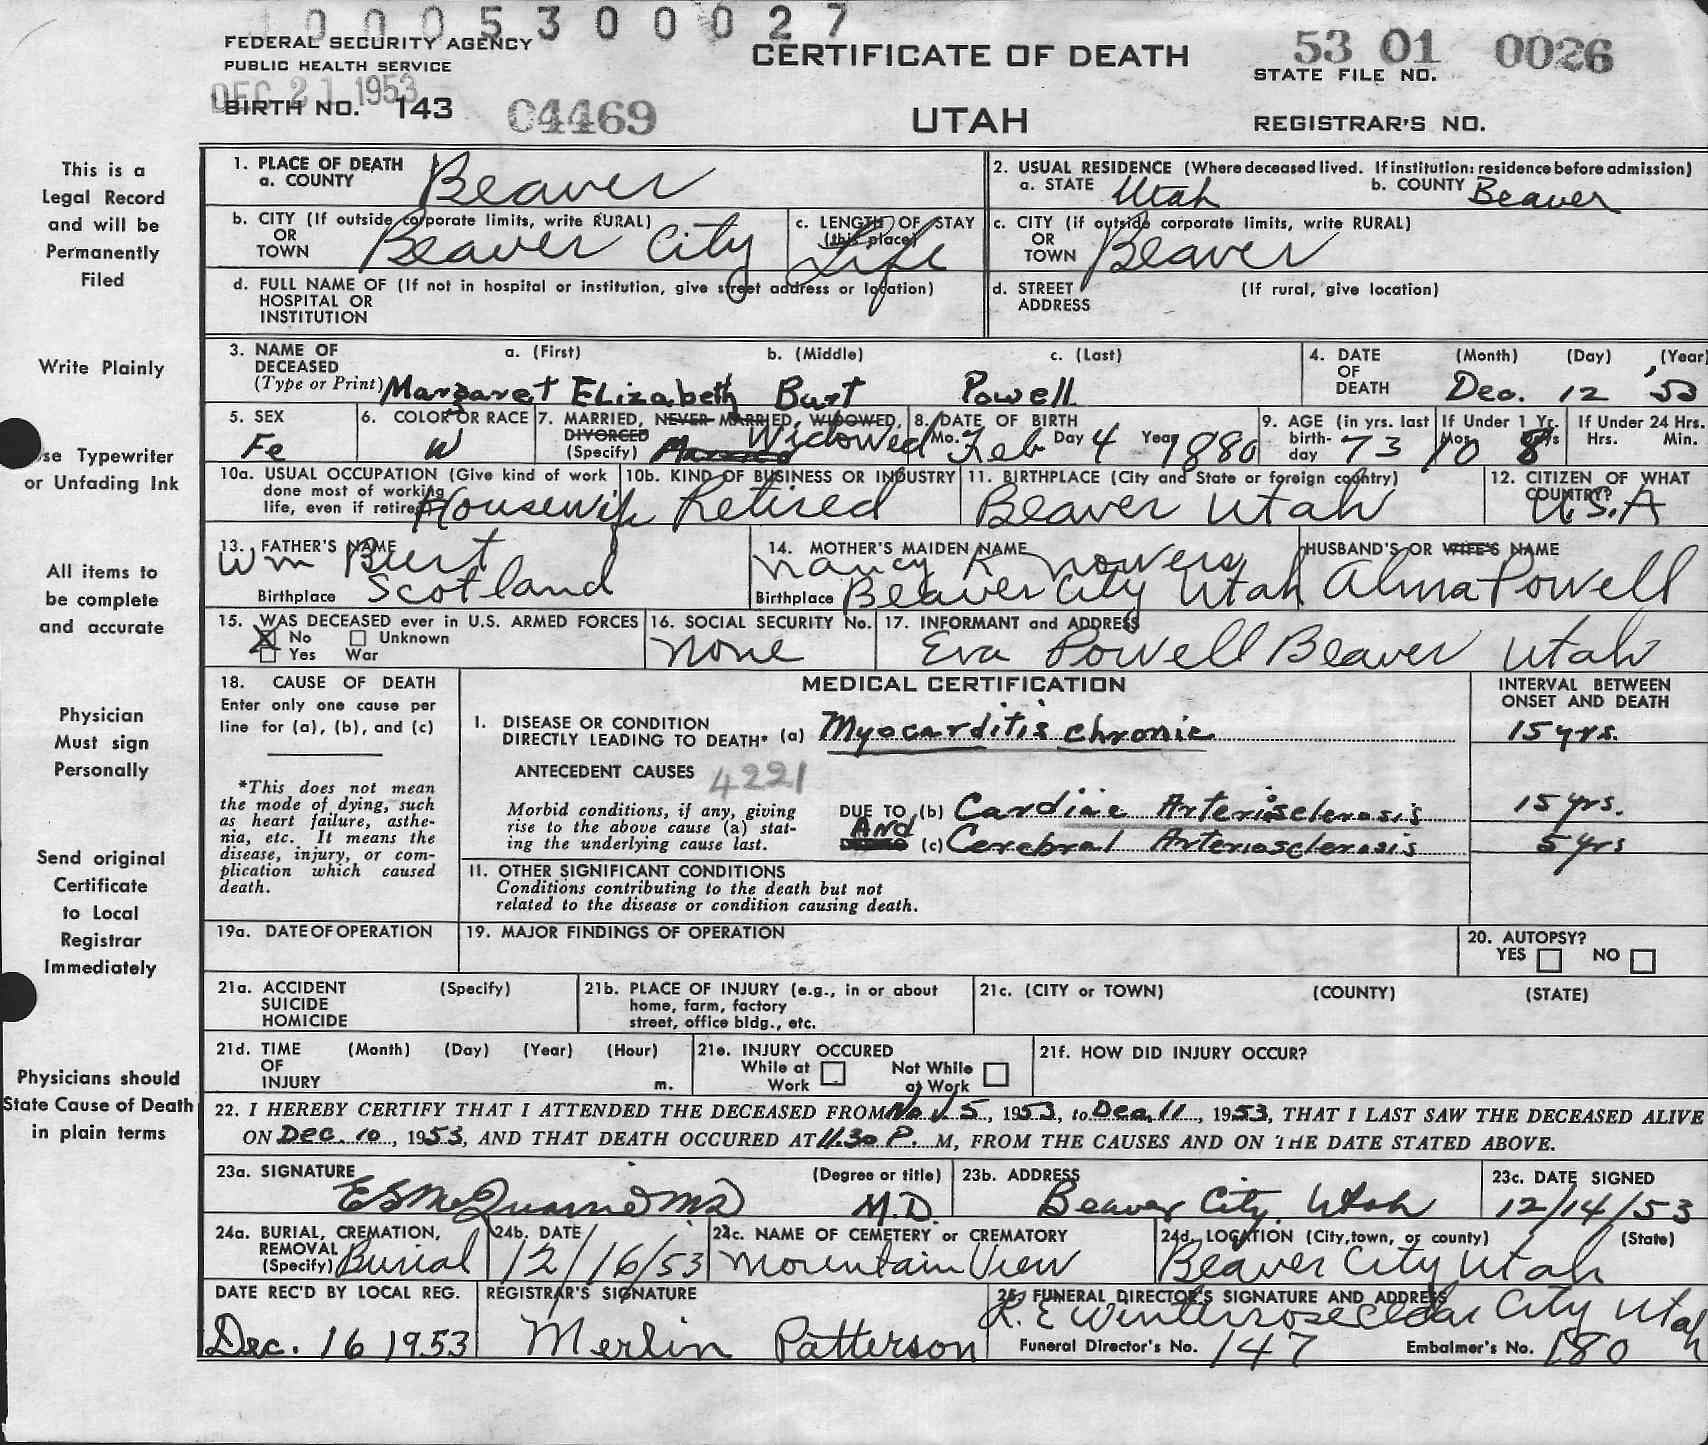 0 0 0 5 3 0 0 0 2 7
FEDERAL SECURITY AGENCY
PUBLIC HEALTH SERVICE
DEC 21 1953
BIRTH NO. 143 04469
CERTIFICATE OF DEATH
UTAH
53 01 0026
STATE FILE NO.
REGISTRAR'S NO.
This is a
Legal Record
and will be
Permanently
Filed
Write Plainly
se Typewriter
or Unfading Ink
All items to
be complete
and accurate
Physician
Must sign
Personally
Send original
Certificate
to Local
Registrar
Immediately
Physicians should
State Cause of Death
in plain terms
1. PLACE OF DEATH
a. COUNTY Beaver
2. USUAL RESIDENCE (Where deceased lived. If institution: residence before admission)
a. STATE Utah b. COUNTY Beaver
b. CITY (If outside corporate limits, write RURAL)
OR
TOWN Beaver City
c. LENGTH OF STAY
(this place) Life
c. CITY (if outside corporate limits, write RURAL)
OR
TOWN Beaver
d. FULL NAME OF (If not in hospital or institution, give street address or location)
HOSPITAL OR
INSTITUTION
d. STREET (If rural, give location)
ADDRESS
3. NAME OF DECEASED a. (First) b. (Middle) c. (Last)
(Type or Print) Margaret Elizabeth Burt Powell
4. DATE OF DEATH (Month) (Day) (Year)
Dec. 12, 53
5. SEX
Fe
6. COLOR OR RACE
W
7. MARRIED, NEVER MARRIED, WIDOWED,
DIVORCED
(Specify) Widowed
8. DATE OF BIRTH
Mo. Feb Day 4 Year 1880
9. AGE (in yrs. last
birth-
day 73
If Under 1 Yr.
Mos. 10 8
If Under 24 Hrs.
Hrs. Min.
10a. USUAL OCCUPATION (Give kind of work
done most of working
life, even if retired) Housewife
10b. KIND OF BUSINESS OR INDUSTRY
Retired
11. BIRTHPLACE (City and State or foreign country)
Beaver Utah
12. CITIZEN OF WHAT
COUNTRY?
U.S.A
13. FATHER'S NAME
Wm Burt
Birthplace Scotland
14. MOTHER'S MAIDEN NAME
Nancy K Nowers
Birthplace Beaver City Utah
HUSBAND'S OR WIFE'S NAME
Alma Powell
15. WAS DECEASED ever in U.S. ARMED FORCES
X No Unknown
Yes War
16. SOCIAL SECURITY No.
None
17. INFORMANT and ADDRESS
Eva Powell Beaver Utah
18. CAUSE OF DEATH
Enter only one cause per
line for (a), (b), and (c)
*This does not mean
the mode of dying, such
as heart failure, asthe-
nia, etc. It means the
disease, injury, or com-
plication which caused
death.
MEDICAL CERTIFICATION
INTERVAL BETWEEN
ONSET AND DEATH
I. DISEASE OR CONDITION
DIRECTLY LEADING TO DEATH* (a) Myocarditis chronic 15 yrs.
ANTECEDENT CAUSES 4221
Morbid conditions, if any, giving
rise to the above cause (a) stat-
ing the underlying cause last.
DUE TO (b) Cardiac Arteriosclerosis 15 yrs.
And (c) Cerebral Arteriosclerosis 5 yrs
II. OTHER SIGNIFICANT CONDITIONS
Conditions contributing to the death but not
related to the disease or condition causing death.
19a. DATE OF OPERATION
19. MAJOR FINDINGS OF OPERATION
20. AUTOPSY?
YES NO
21a. ACCIDENT (Specify)
SUICIDE
HOMICIDE
21b. PLACE OF INJURY (e.g., in or about
home, farm, factory
street, office bldg., etc.
21c. (CITY or TOWN) (COUNTY) (STATE)
21d. TIME (Month) (Day) (Year) (Hour)
OF
INJURY m.
21e. INJURY OCCURED
While at Work Not While at Work
21f. HOW DID INJURY OCCUR?
22. I HEREBY CERTIFY THAT I ATTENDED THE DECEASED FROM Nov. 5, 1953, to Dec. 11, 1953, THAT I LAST SAW THE DECEASED ALIVE
ON Dec. 10, 1953, AND THAT DEATH OCCURED AT 11.30 P. M, FROM THE CAUSES AND ON THE DATE STATED ABOVE.
23a. SIGNATURE (Degree or title)
E S McQuarrie MD M.D.
23b. ADDRESS
Beaver City, Utah
23c. DATE SIGNED
12/14/53
24a. BURIAL, CREMATION,
REMOVAL
(Specify) Burial
24b. DATE
12/16/53
24c. NAME OF CEMETERY or CREMATORY
Mountain View
24d. LOCATION (City, town, or county) (State)
Beaver City Utah
DATE REC'D BY LOCAL REG.
Dec. 16 1953
REGISTRAR'S SIGNATURE
Merlin Patterson
25. FUNERAL DIRECTOR'S SIGNATURE AND ADDRESS
R. E Winterrose Cedar City Utah
Funeral Director's No. 147 Embalmer's No. 180